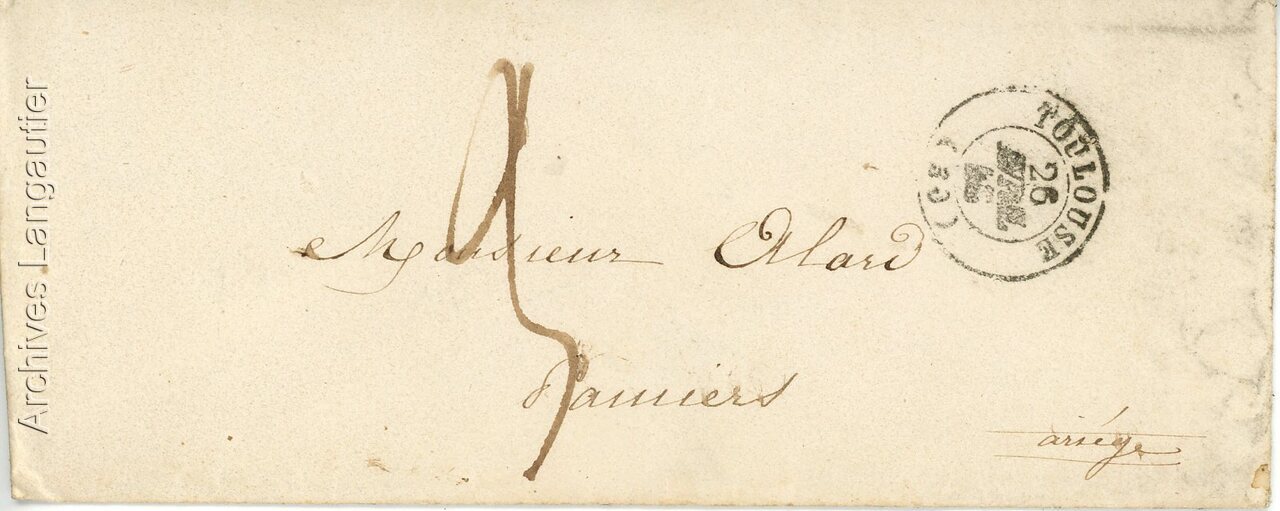 Archives Langautier
TOULOUSE
26
(30)
Monsieur Alard
Pamiers
ariége